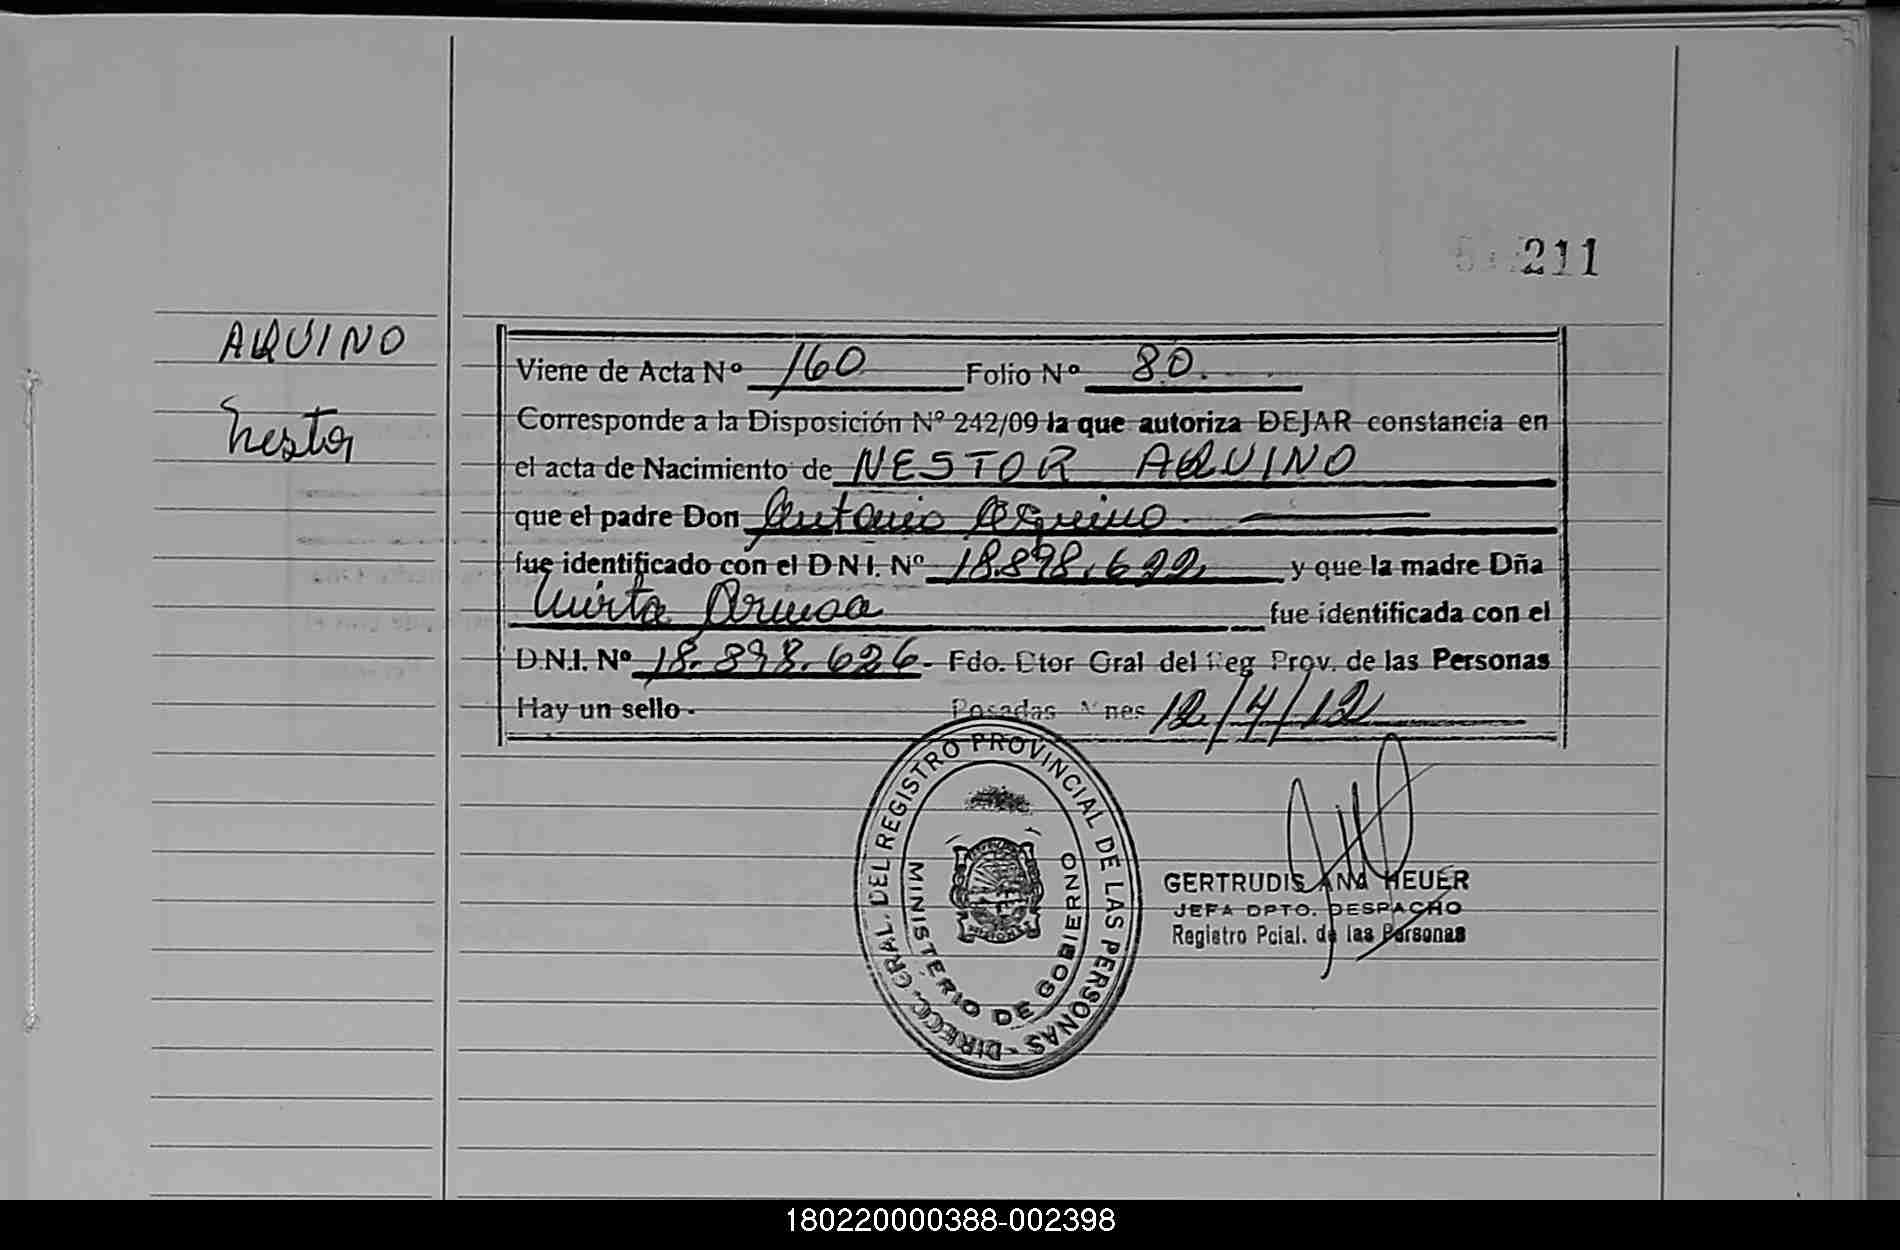 211
AQUINO
Nestor
Viene de Acta Nº 160 Folio Nº 80.
Corresponde a la Disposición Nº 242/09 la que autoriza DEJAR constancia en
el acta de Nacimiento de NESTOR AQUINO
que el padre Don Antonio Aquino
fue identificado con el D N I. Nº 18.898.622, y que la madre Dña
Mirta fue identificada con el
D.N.I. Nº 18.898.626- Fdo. Dtor Gral del Reg Prov. de las Personas
Hay un sello - Posadas Mnes 12/4/12
DIRECC. GRAL. DEL REGISTRO PROVINCIAL DE LAS PERSONAS -
MINISTERIO DE GOBIERNO
GERTRUDIS ANA HEUER
JEFA DPTO. DESPACHO
Registro Pcial. de las Personas
180220000388-002398